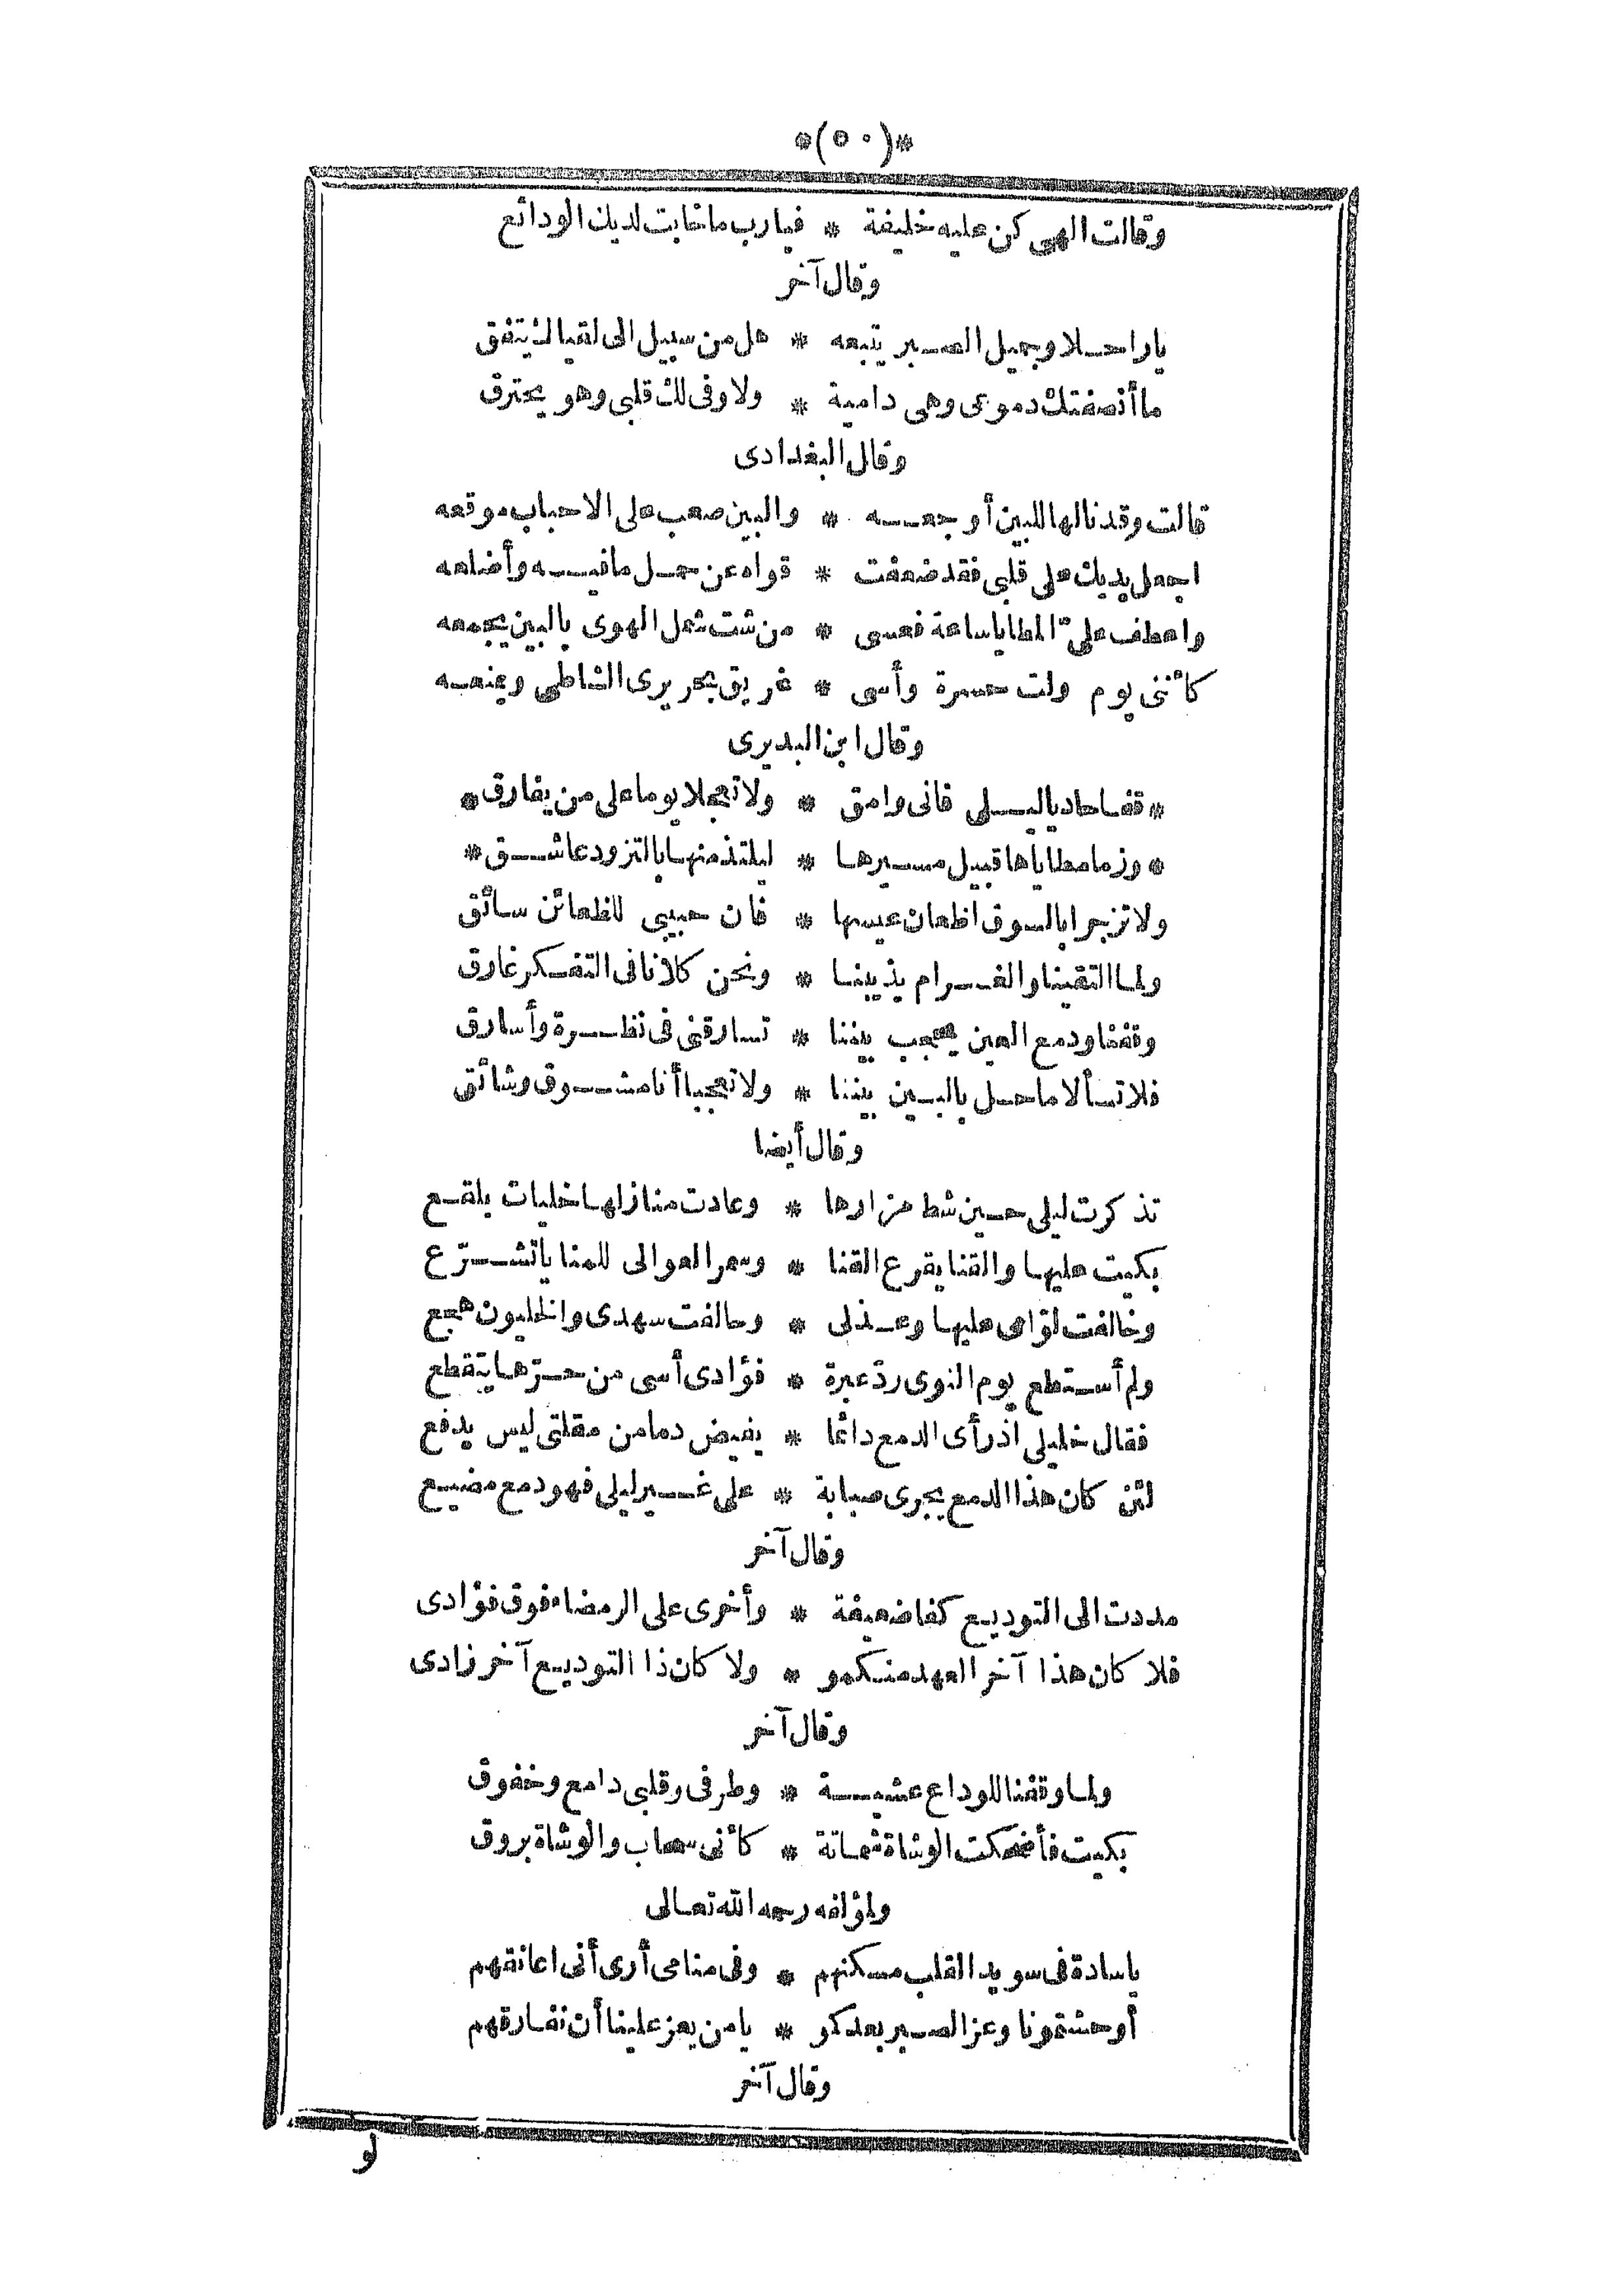 *(٥٠)*
وقالت الهى كن عليه خليفة * فيارب ماخابت لديك الودائع
وقال آخر
ياراحلا وجميل الصبر يتبعه * هل من سبيل الى لقياك يتفق
ما أنصفتك دموعى وهى دامية * ولا وفى لك قلبى وهو يحترق
وقال البغدادى
قالت وقد نالها للبين أوجعه * والبين صعب على الاحباب موقعه
اجعل يديك على قلبى فقد ضعفت * قواه عن حمل مافيه وأضلعه
واعطف علىّ المطايا ساعة فعسى * من شت شمل الهوى بالبين يجمعه
كأننى يوم ولت حسرة وأسى * غريق بحر يرى الشاطى ويمنعه
وقال ابن البديرى
* قفا حاديا ليلى فانى وامق * ولا تعجلا يوما على من يفارق *
* وزما مطاياها قبيل مسيرها * ليلتذ منها بالتزود عاشق *
ولا تزجرا بالسوق اظعان عيسها * فان حبيبى للظعائن سائق
ولما التقينا والغرام يذيبنا * ونحن كلانا فى التفكر غارق
وقفنا ودمع العين يحجب بيننا * تسارقنى فى نظرة وأسارق
فلا تسألا ماحل بالبين بيننا * ولا تعجبا أنا مشوق وشائق
وقال أيضا
تذكرت ليلى حين شط مزارها * وعادت منازلها خليات بلقع
بكيت عليها والقنا يقرع القنا * وسمر العوالى للمنايا تشرّع
وخالفت لوّامى عليها وعذلى * وحالفت سهدى والخليون هجع
ولم أستطع يوم النوى ردّ عبرة * فؤادى أسى من حرّها يتقطع
فقال خليلى اذ رأى الدمع دائما * يفيض دما من مقلتى ليس يدفع
لئن كان هذا الدمع يجرى صبابة * على غير ليلى فهو دمع مضيع
وقال آخر
مددت الى التوديع كفا ضعيفة * وأخرى على الرمضاء فوق فؤادى
فلا كان هذا آخر العهد منكمو * ولا كان ذا التوديع آخر زادى
وقال آخر
ولما وقفنا للوداع عشية * وطرفى وقلبى دامع وخفوق
بكيت فأضحكت الوشاة شماتة * كأنى سحاب والوشاة بروق
ولمؤلفه رحمه الله تعالى
ياسادة فى سويد القلب مسكنهم * وفى منامى أرى أنى اعانقهم
أوحشتمونا وعز الصبر بعدكمو * يامن يعز علينا أن نفارقهم
وقال آخر
لو